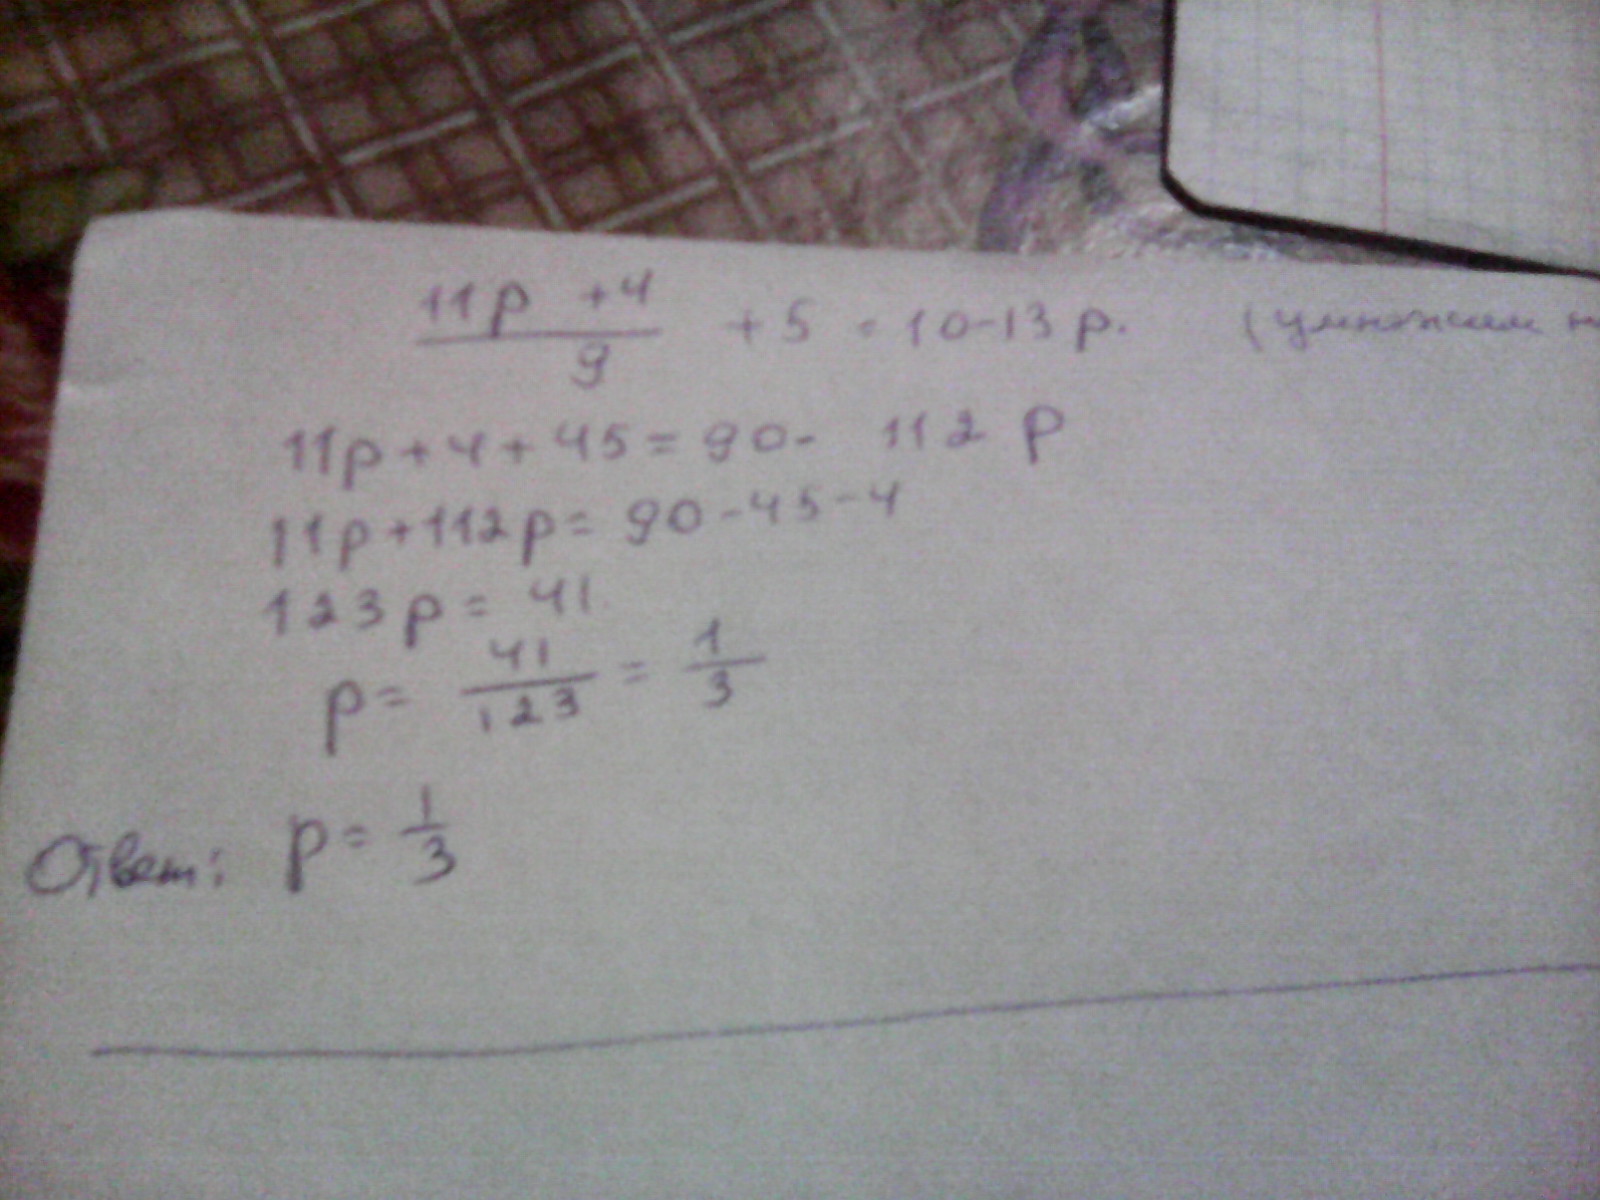 11p +4 / 9 + 5 = 10-13p. (умножим
11p+4+45=90- 112 p
11p+112p=90-45-4
123p=41
p= 41/123 = 1/3
Ответ: p= 1/3